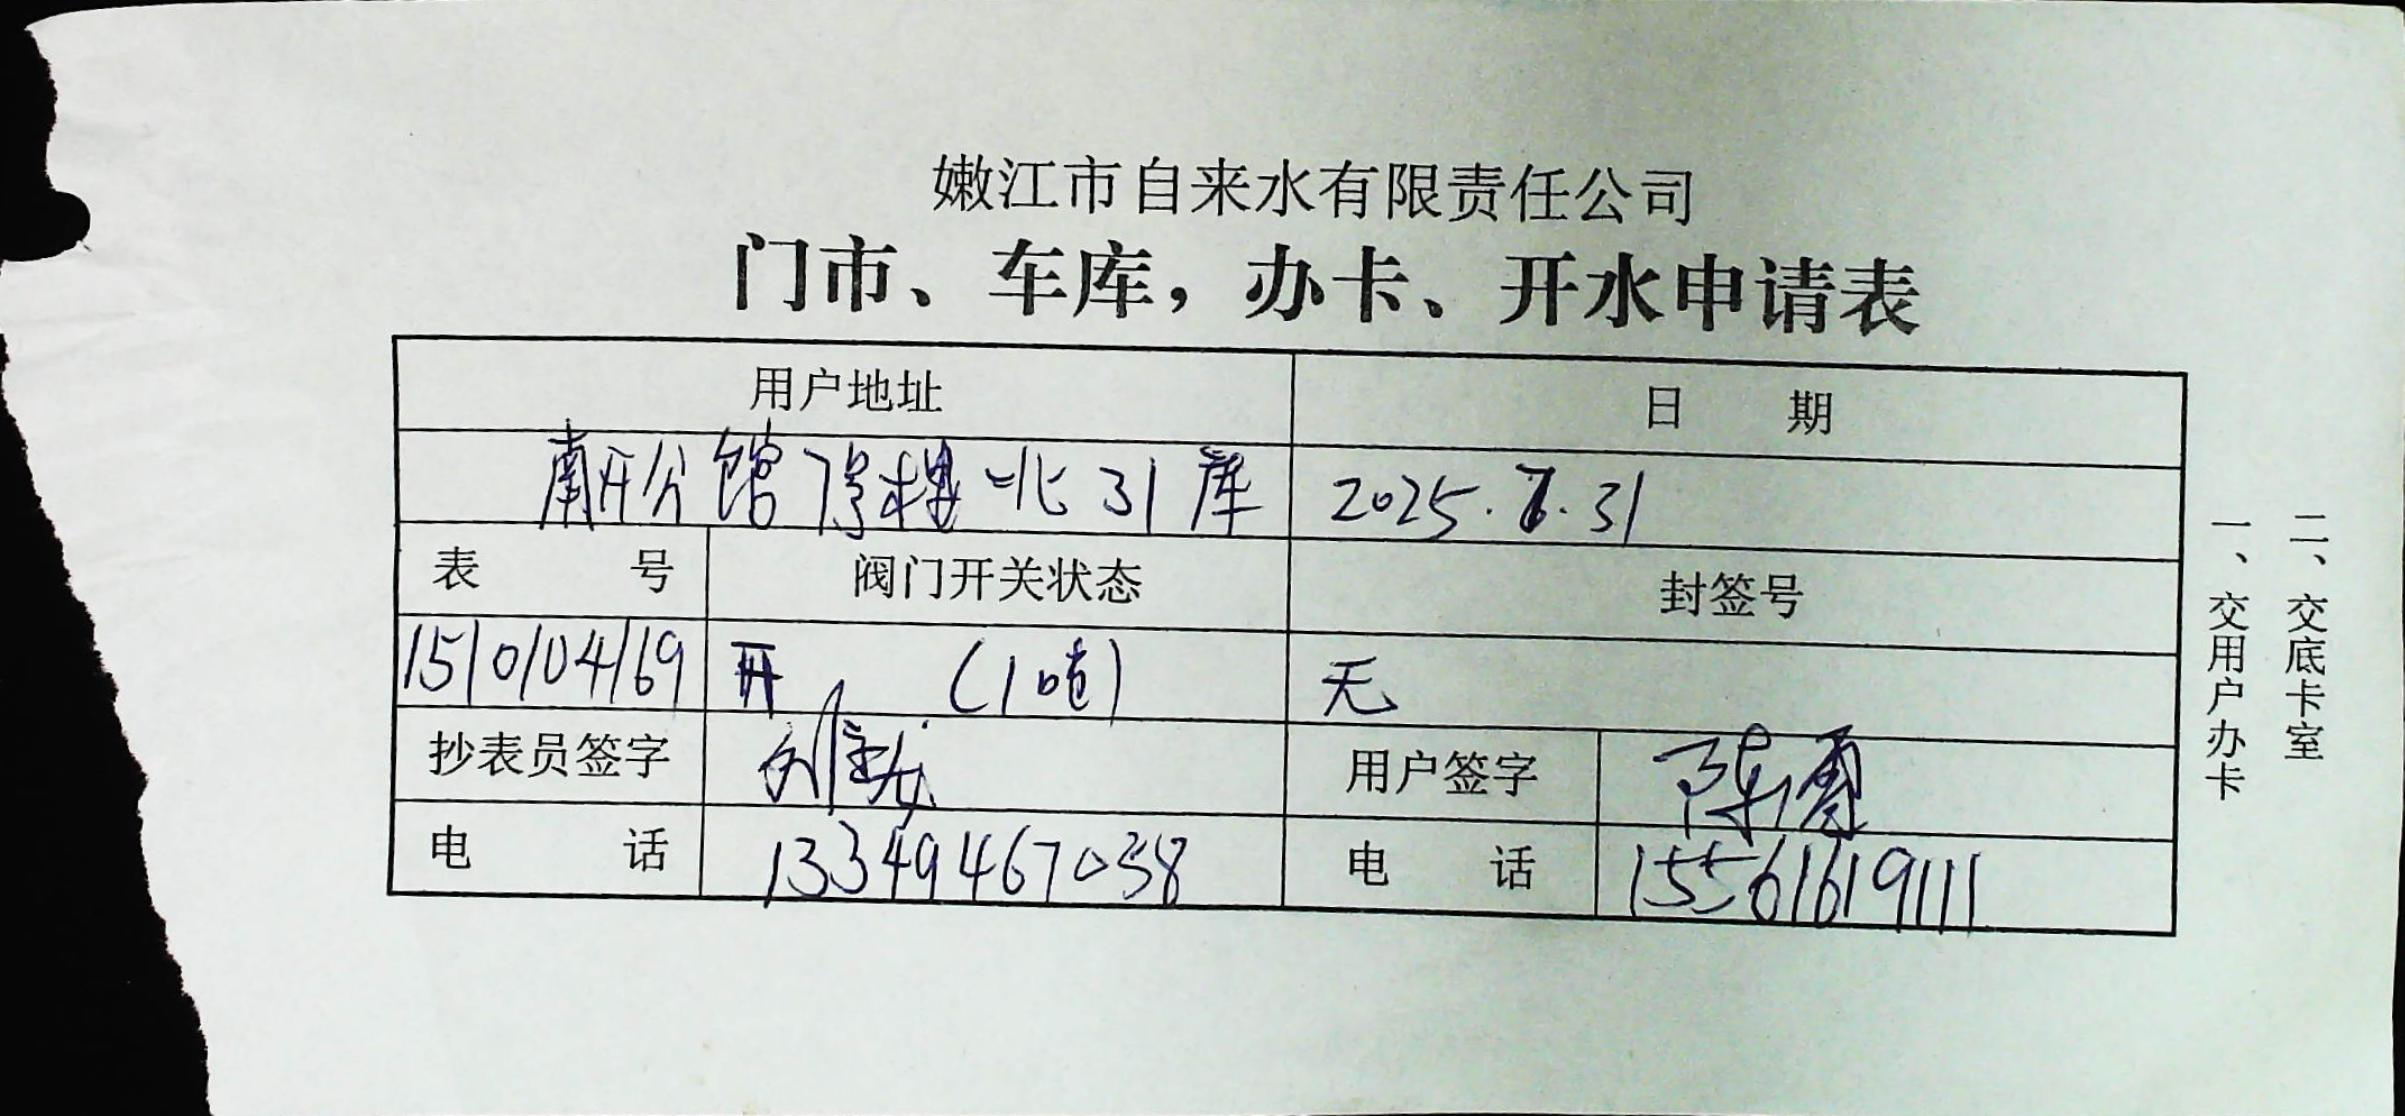 嫩江市自来水有限责任公司
门市、车库，办卡、开水申请表
用户地址 日 期
南开公馆7号楼北31库 2025.7.31
表 号 阀门开关状态 封签号
1510104169 开 (1吨) 无
抄表员签字 用户签字 陈
电 话 13349467038 电 话 15561619111
一、交用户办卡
二、交底卡室